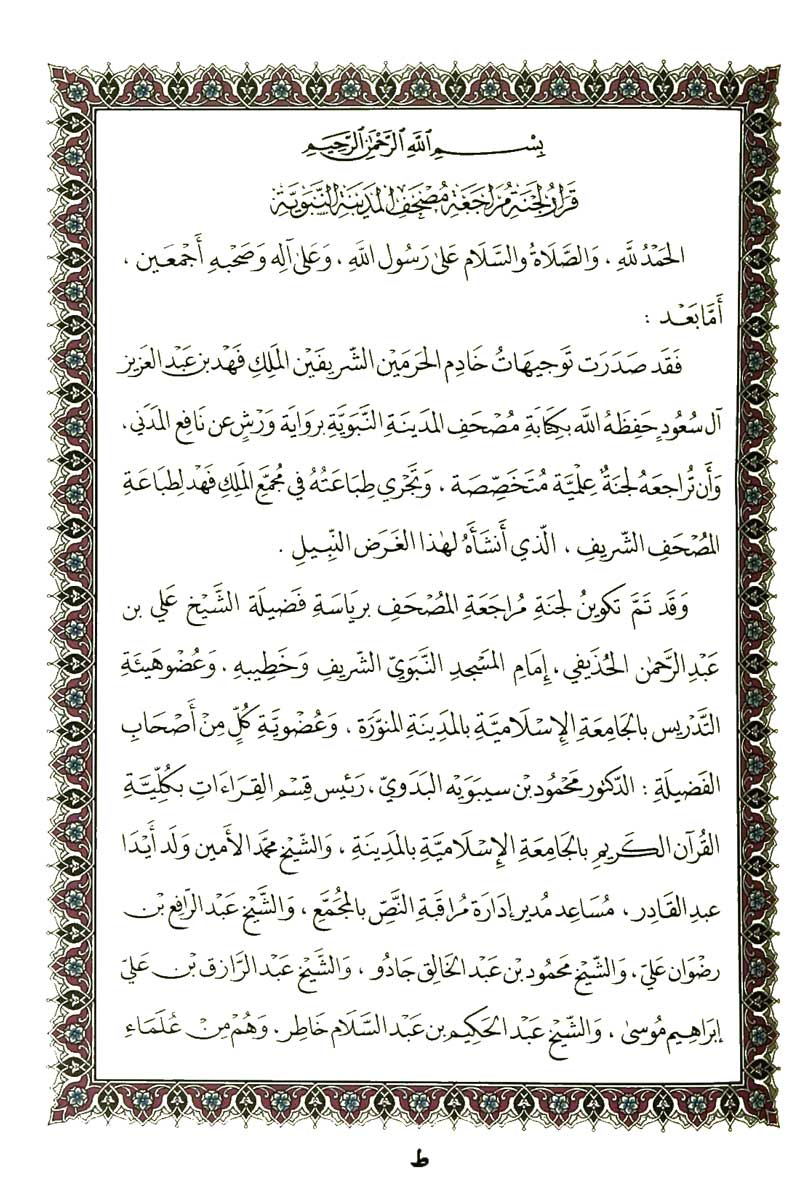 بِسْمِ ٱللَّهِ ٱلرَّحْمَٰنِ ٱلرَّحِيمِ
قَرَارُ لَجْنَةِ مُرَاجَعَةِ مُصْحَفِ المَدِينَةِ النَّبَوِيَّةِ
الحَمْدُ للَّهِ ، وَالصَّلَاةُ والسَّلَام عَلىٰ رَسُول اللَّهِ ، وَعَلىٰ آلِه وَصَحْبِهِ أَجْمَعين ،
أَمَّا بَعْد :
فَقَد صَدَرَت تَوجيهَاتُ خَادِم الحَرَمَيْن الشَّرِيفَيْن المَلِكِ فَهْد بن عَبْد العَزيز
آل سُعُودٍ حَفِظَهُ اللَّه بكِتَابَةِ مُصْحَفِ المَدِينَةِ النَّبَوِيَّةِ بِروَايَة وَرْشٍ عن نَافِع المَدَني ،
وَأَن تُراجعَهُ لجنَةٌ عِلميَّة مُتَخَصِّصَة ، وَتَجْري طِبَاعَتُهُ في مُجمَّع المَلِكِ فَهْد لِطبَاعَةِ
المُصْحَفِ الشَّرِيفِ ، الَّذي أَنشَأَهُ لهٰذا الغَرَض النَّبِيلِ .
وَقَد تَمَّ تكوينُ لجنَةِ مُراجَعَةِ المُصْحَفِ برِيَاسَةِ فَضِيلَة الشَّيْخ عَلي بن
عَبْدِ الرَّحمٰن الحُذَيفي ، إمَامِ المَسْجدِ النَّبَويّ الشَّريفِ وَخَطِيبهِ ، وَعُضو هَيئَةِ
التَّدْريس بالجَامعَةِ الإِسْلَاميَّةِ بالمَدِينَةِ المنوَّرَة ، وَعُضْويَّةِ كُلٍّ مِنْ أَصْحَابِ
الفَضِيلَةِ : الدّكتور مَحْمُود بن سيبَوَيه البَدَويّ ، رَئيس قِسْم القِرَاءَاتِ بكُلِّيَّةِ
القُرآن الكَريمِ بالجَامعَةِ الإِسْلاميَّةِ بالمَدِينَةِ ، وَالشَّيْخ محمَّد الأَمين وَلَد أَيْدَا
عبدِ القَادِر ، مُسَاعِد مُدير إدَارَة مُراقَبَةِ النَّصِّ بالمُجمَّع ، وَالشَّيْخ عَبْد الرَّافع بْن
رضْوَان عَليّ ، وَالشَّيْخ مَحمُود بن عَبْد الخَالِق جَادُو ، وَالشَّيْخ عَبْد الرَّازق بْن عَليّ
إبرَاهِيم مُوسىٰ ، وَالشَّيْخ عَبْد الحَكِيم بن عَبْد السَّلَام خَاطِر . وَهُم مِنْ عُلَمَاءِ
ط